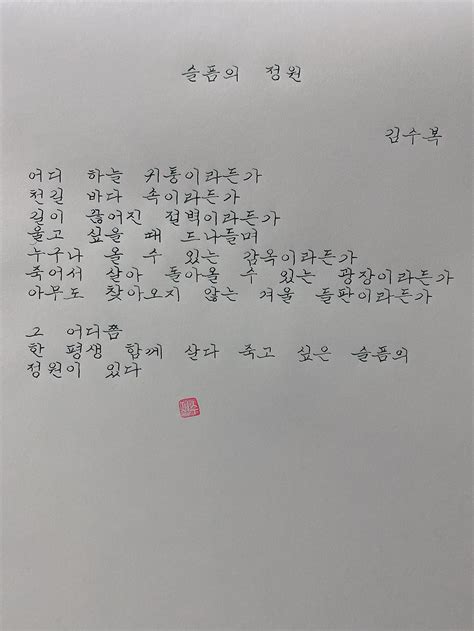 슬픔의 정원
김수복
어디 하늘 귀퉁이라든가
천길 바다 속이라든가
길이 끊어진 절벽이라든가
울고 싶을 때 드나들며
누구나 올 수 있는 감옥이라든가
죽어서 살아 돌아올 수 있는 광장이라든가
아무도 찾아오지 않는 겨울 들판이라든가
그 어디쯤
한 평생 함께 살다 죽고 싶은 슬픔의
정원이 있다